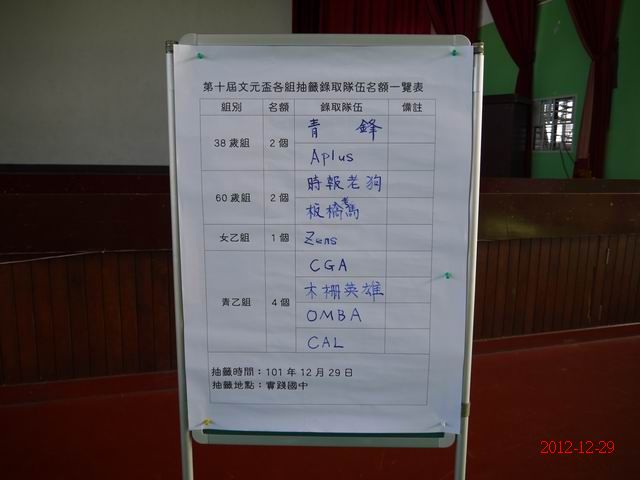 第十屆文元盃各組抽籤錄取隊伍名額一覽表
組別 名額 錄取隊伍 備註
38歲組 2個 青鋒
Aplus
60歲組 2個 時報老狗
板橋老馬
女乙組 1個 Zens
青乙組 4個 CGA
木柵英雄
OMBA
CAL
抽籤時間：101年12月29日
抽籤地點：實踐國中
2012-12-29